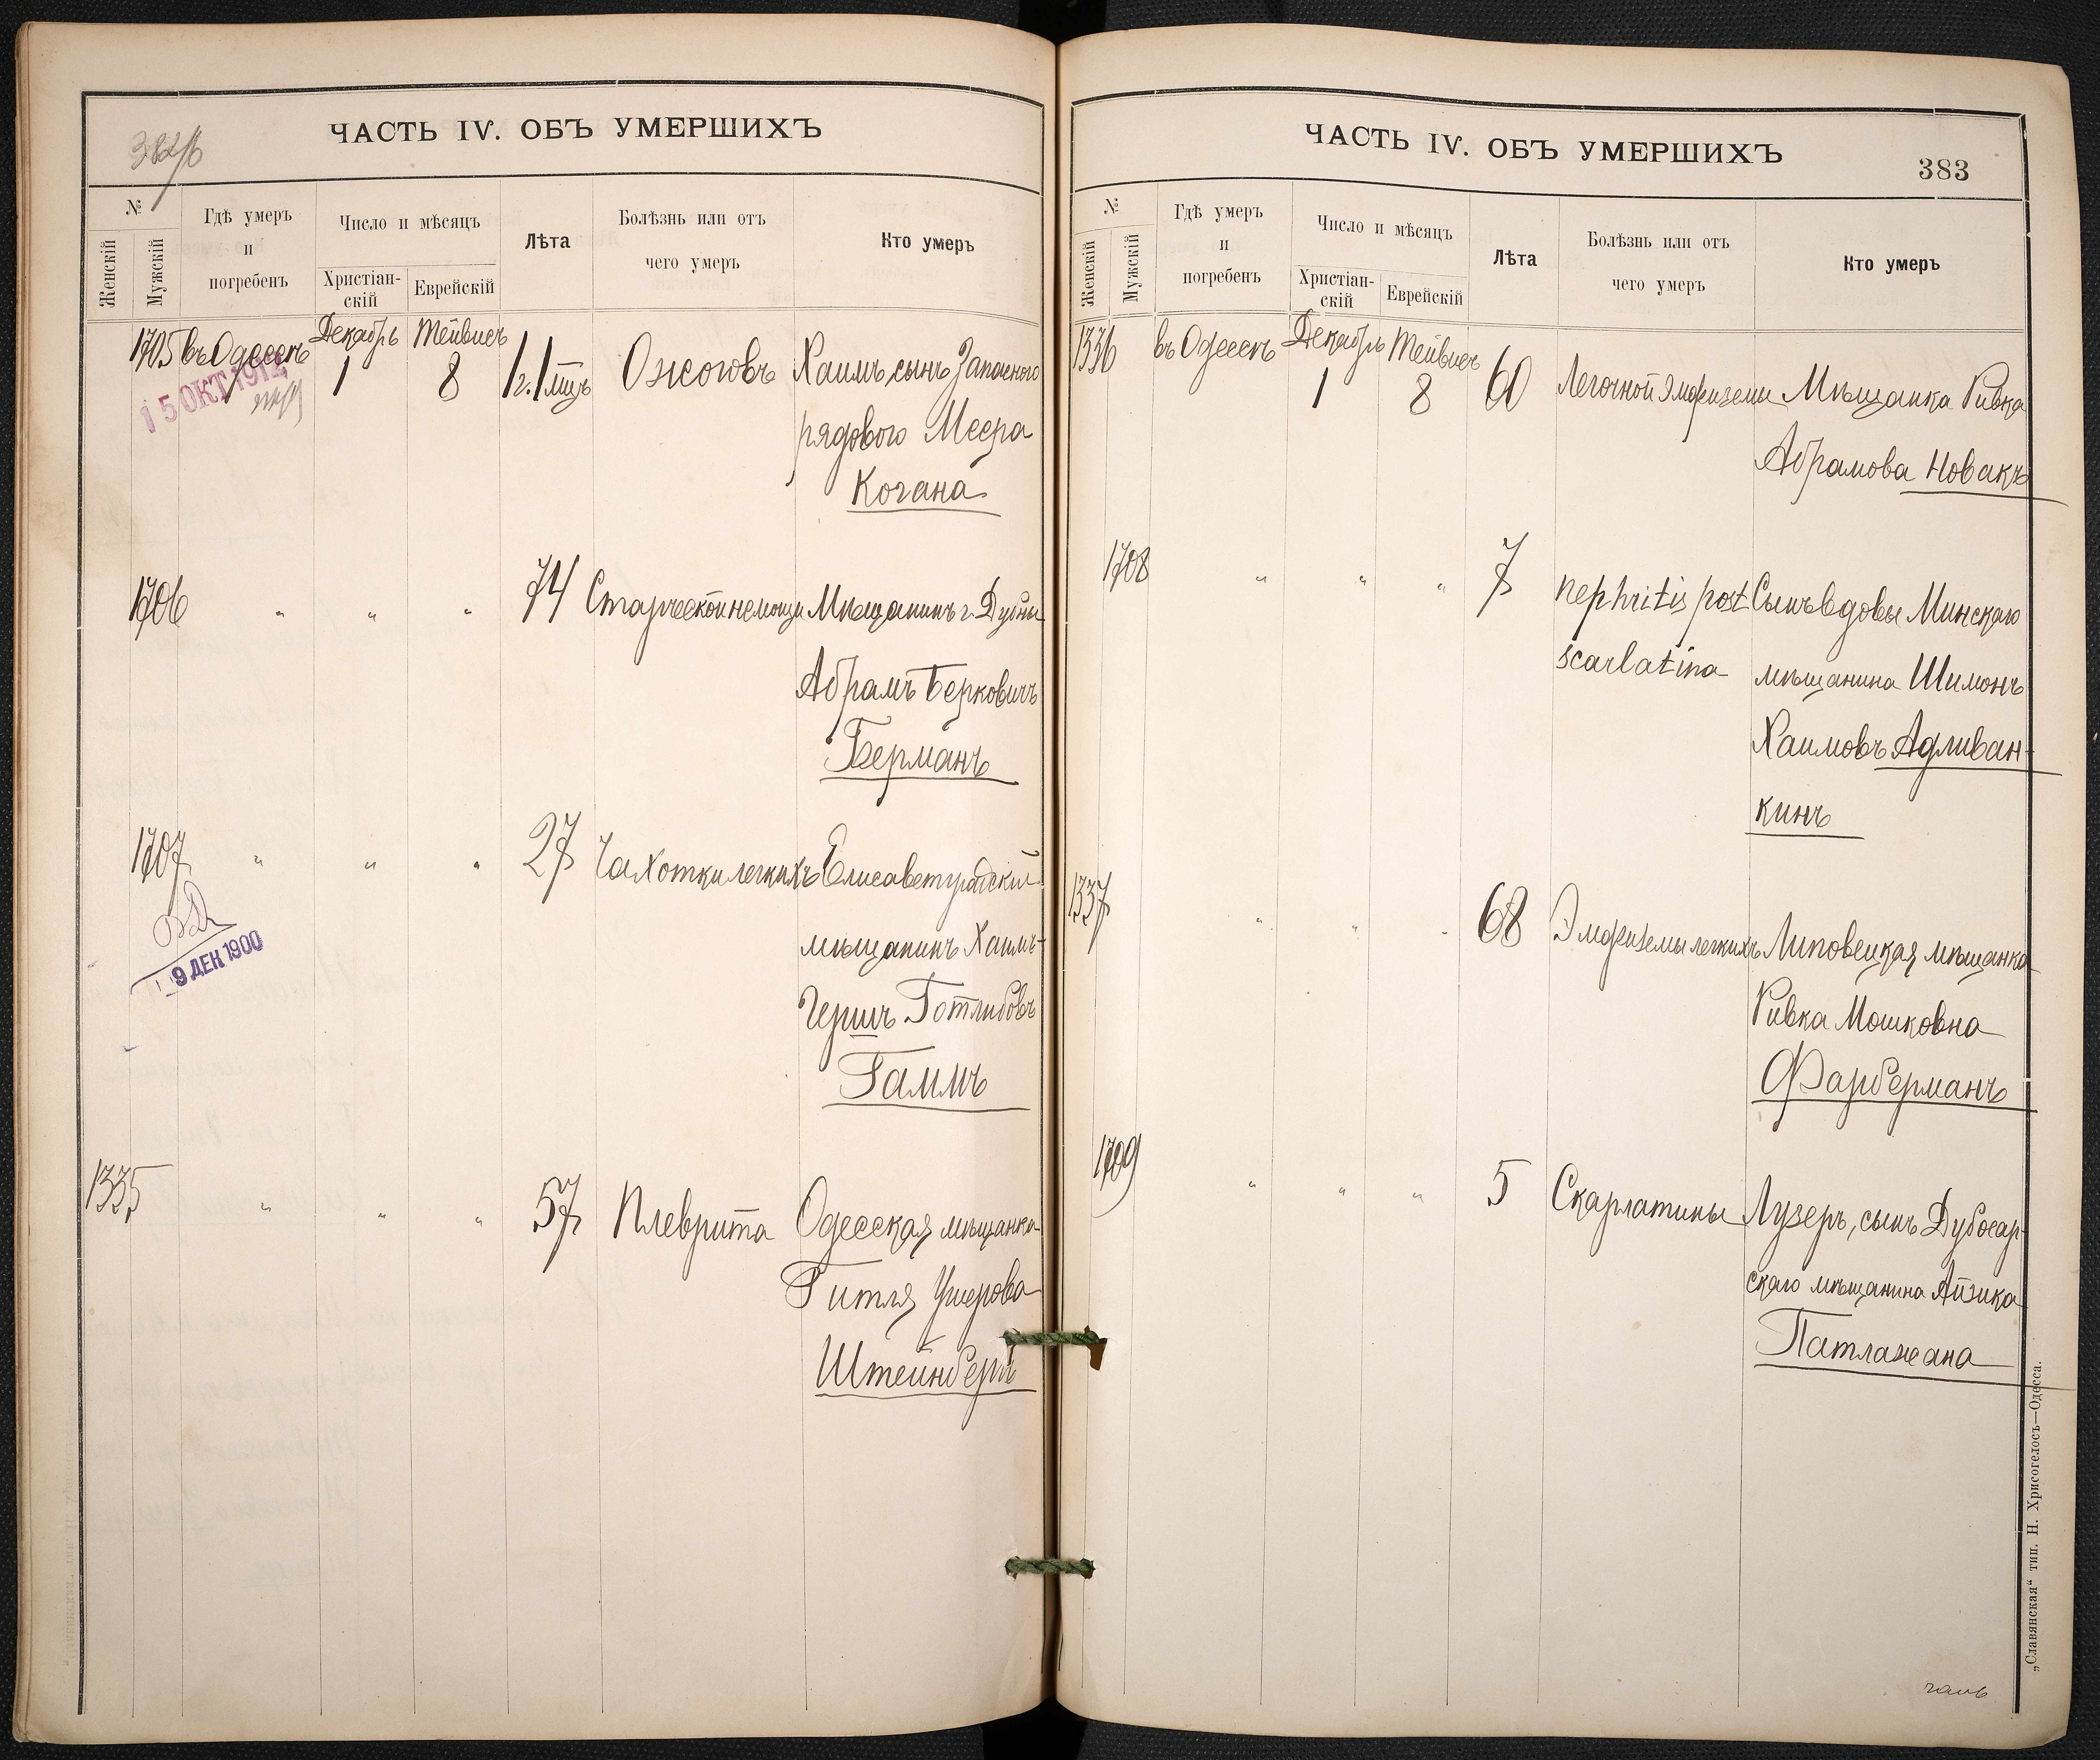 382/б
ЧАСТЬ IV. ОБЪ УМЕРШИХЪ
№
Женскій
Мужскій
Гдѣ умеръ
и
погребенъ
Число и мѣсяцъ
Христіан-
скій
Еврейскій
Лѣта
Болѣзнь или отъ
чего умеръ
Кто умеръ
1705 въ Одессѣ Декабрь 1 Тейвисъ 8 1 г. 1 мцъ Ожоговъ Хаимъ, сынъ Запасного
15 ОКТ 1912
рядового Меера
Когана
1706 " " " 74 Старческой немощи Мѣщанинъ г. Дубны
Абрамъ Берковичъ
Берманъ
1707 " " " 27 Чахотки легкихъ Елисаветградскій
мѣщанинъ Хаимъ-
Гершъ Готлибовъ
Гаммъ
9 ДЕК 1900
1335 " " " 57 Плеврита Одесская мѣщанка
Гитля Ушерова
Штейнбергъ
ЧАСТЬ IV. ОБЪ УМЕРШИХЪ
383
№
Женскій
Мужскій
Гдѣ умеръ
и
погребенъ
Число и мѣсяцъ
Христіан-
скій
Еврейскій
Лѣта
Болѣзнь или отъ
чего умеръ
Кто умеръ
1336 въ Одессѣ Декабрь 1 Тейвисъ 8 60 Легочной Эмфиземы Мѣщанка Ривка
Абрамова Новакъ
1708 " " " 7 Nephritis post Сынъ вдовы Минскаго
scarlatina мѣщанина Шимонъ
Хаимовъ Адливан-
кинъ
1337 " " " 68 Эмфиземы легкихъ Липовецкая мѣщанка
Ривка Мошковна
Фарберманъ
1709 " " " 5 Скарлатины Лузеръ, сынъ Дубосар-
скаго мѣщанина Айзика
Патлажана
„Славянская“ тип. Н. Хрисогелосъ—Одесса.